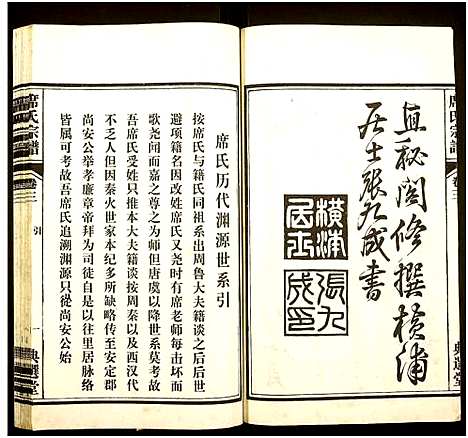 席氏宗譜
卷三
典選堂
直秘閣修撰横浦
居士張九成書
横浦居士
張九成印
席氏历代渊源世系引
按席氏与籍氏同祖系出周鲁大夫籍谈之后后世
避项籍名因改姓席氏又尧时有席老师每出击壤而
歌尧问而嘉之尊之以为师但唐虞以降世系莫考故
吾席氏受姓只推本大夫籍谈按周秦以及西汉代
不乏人但因秦火世家本纪多所缺略传至安定郡
尚安公举孝廉章帝拜为司徒自是以往里居脉络
皆属可考故吾席氏追溯渊源只從尚安公始
席氏宗譜
卷三
引
一
典選堂